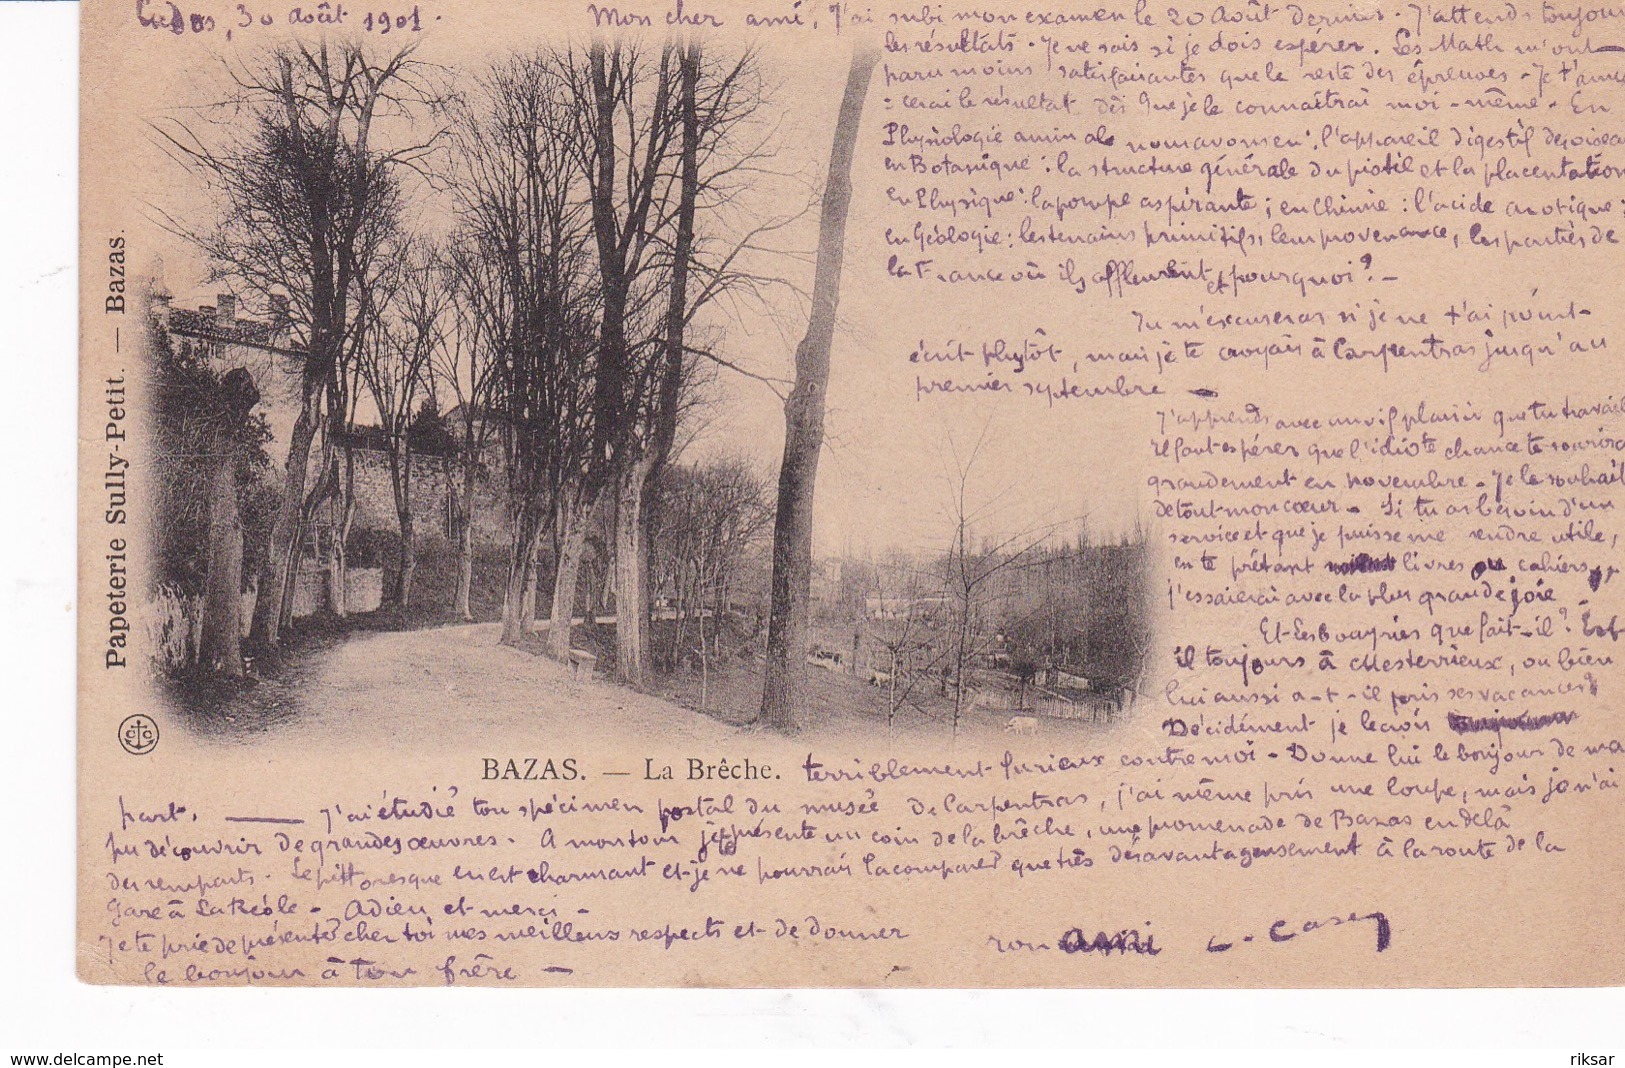 30 Août 1901. Mon cher ami, J'ai subi mon examen le 20 Août dernier. J'attends toujours
les résultats. Je ne sais si je dois espérer. Les Math m'ont
paru moins satisfaisantes que le reste des épreuves. Je t'annon
cerai le résultat dès que je le connaîtrai moi-même. En
Physiologie animale nous avons eu : l'appareil digestif des oiseaux
en Botanique : la structure générale du pistil et la placentation
en Physique : la pompe aspirante ; en Chimie : l'acide azotique ;
en Géologie : les terrains primitifs, leur provenance, les parties de
la France où ils affleurent et pourquoi ? —
Tu m'excuseras si je ne t'ai point
écrit plutôt, mais je te croyais à Carpentras jusqu'au
premier septembre —
J'apprends avec un vif plaisir que tu travailles
Il faut espérer que l'idiote chance te sourira
grandement en novembre. Je le souhaite
de tout mon cœur. Si tu as besoin d'un
service et que je puisse me rendre utile,
en te prêtant livres ou cahiers,
j'essaierai avec la plus grande joie.
Et que fait-il ? Est-
il toujours à Mesterrieux, ou bien
lui aussi a-t-il pris ses vacances ?
Décidément je le crois
terriblement furieux contre moi. Donne lui le bonjour de ma
part. — J'ai étudié ton spécimen postal du musée de Carpentras, j'ai même pris une loupe, mais je n'ai
pu découvrir de grandes œuvres. A mon tour je te présente un coin de la brêche, une promenade de Bazas en delà
des remparts. Le pittoresque en est charmant et je ne pourrais la comparer que très désavantageusement à la route de la
Gare à La Réole. Adieu et merci.
Je te prie de présenter chez toi mes meilleurs respects et de donner
le bonjour à ton frère —
ton ami C. Casey
BAZAS. — La Brêche.
Papeterie Sully-Petit. — Bazas.
C C
www.delcampe.net
riksar